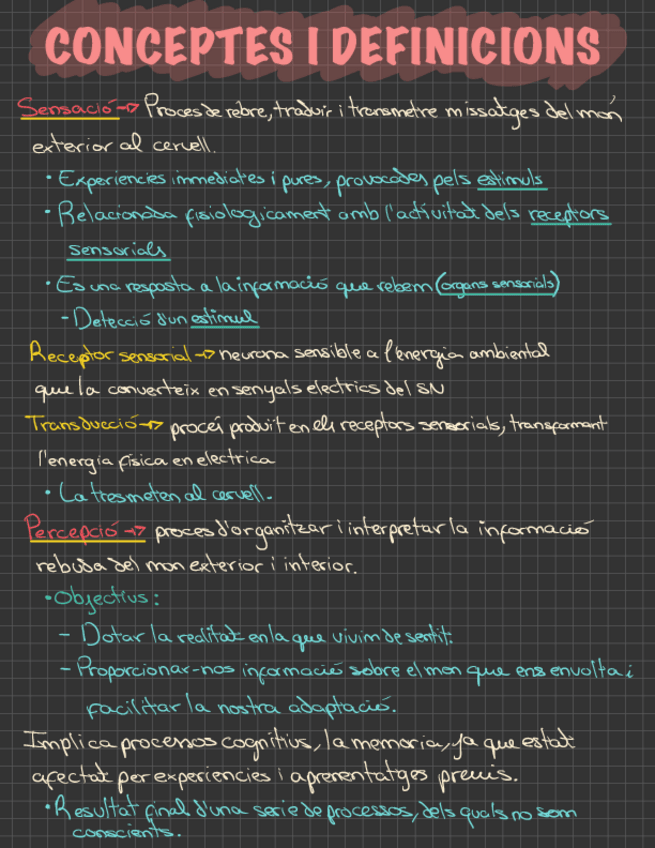 CONCEPTES I DEFINICIONS
Sensació → Proces de rebre, traduir i transmetre missatges del món
exterior al cervell.
• Experiencies immediates i pures, provocades pels estimuls
• Relacionada fisiologicament amb l'activitat dels receptors
sensorials
• Es una resposta a la informació que rebem (organs sensorials)
- Detecció d'un estimul
Receptor sensorial → neurona sensible a l'energia ambiental
que la converteix en senyals electrics del SN
Transducció → procés produit en els receptors sensorials, transformant
l'energia física en electrica
• La tresmeten al cervell.
Percepció → proces d'organitzar i interpretar la informació
rebuda del mon exterior i interior.
• Objectius:
- Dotar la realitat en la que vivim de sentit.
- Proporcionar-nos informació sobre el mon que ens envolta i
facilitar la nostra adaptació.
Implica processos cognitius, la memoria, ja que estat
afectat per experiencies i aprenentatges previs.
• Resultat final d'una serie de processos, dels quals no som
conscients.